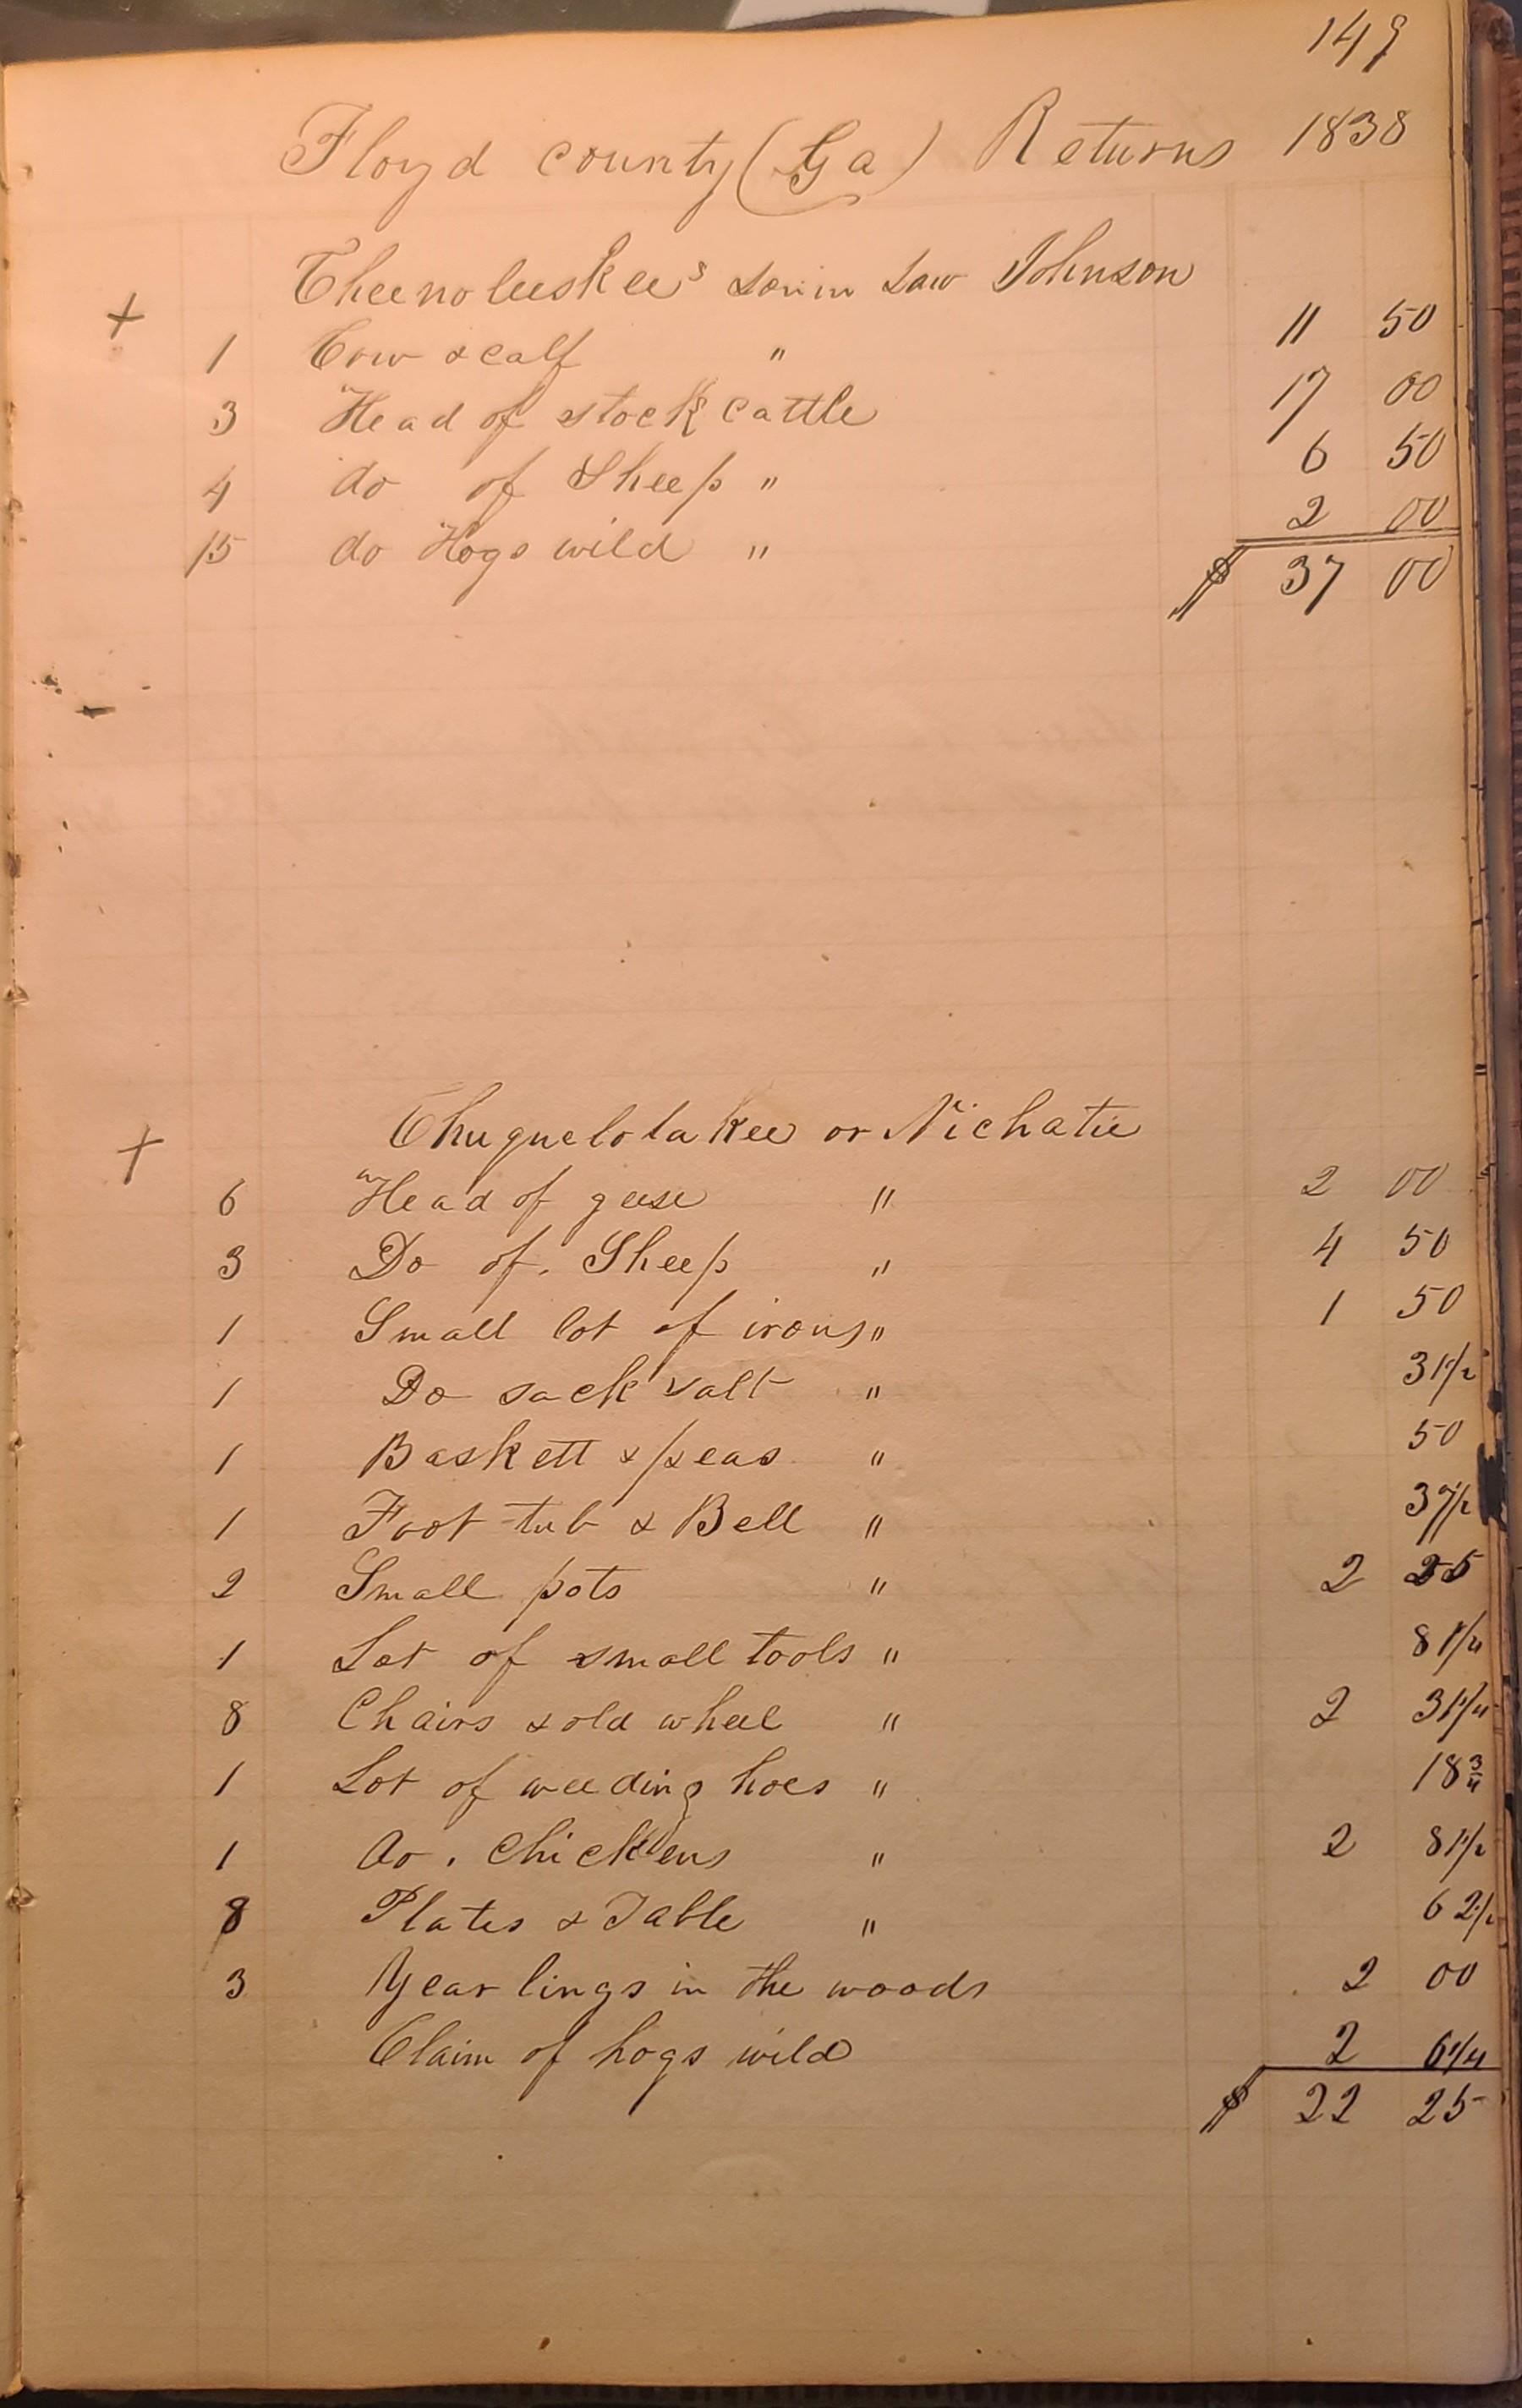 149
Floyd county (Ga) Returns 1838
+ Cheenoleeskee's son in law Johnson
1 Cow & calf " 11 50
3 Head of stock cattle 17 00
4 do of Sheep " 6 50
15 do Hogs wild " 2 00
$ 37 00
+ Chuguelotakee or Nichatie
6 Head of geese " 2 00
3 Do of Sheep " 4 50
1 Small lot of irons " 1 50
1 Do sack salt " 31/2
1 Baskett & peas " 50
1 Foot tub & Bell " 37/2
2 Small pots " 2 25
1 Lot of small tools " 81/4
8 Chairs & old wheel " 2 31/4
1 Lot of weeding hoes " 18 3/4
1 do. Chickens " 2 81/2
8 Plates & Table " 62/2
3 Yearlings in the woods 2 00
Claim of hogs wild 2 61/4
$ 22 25